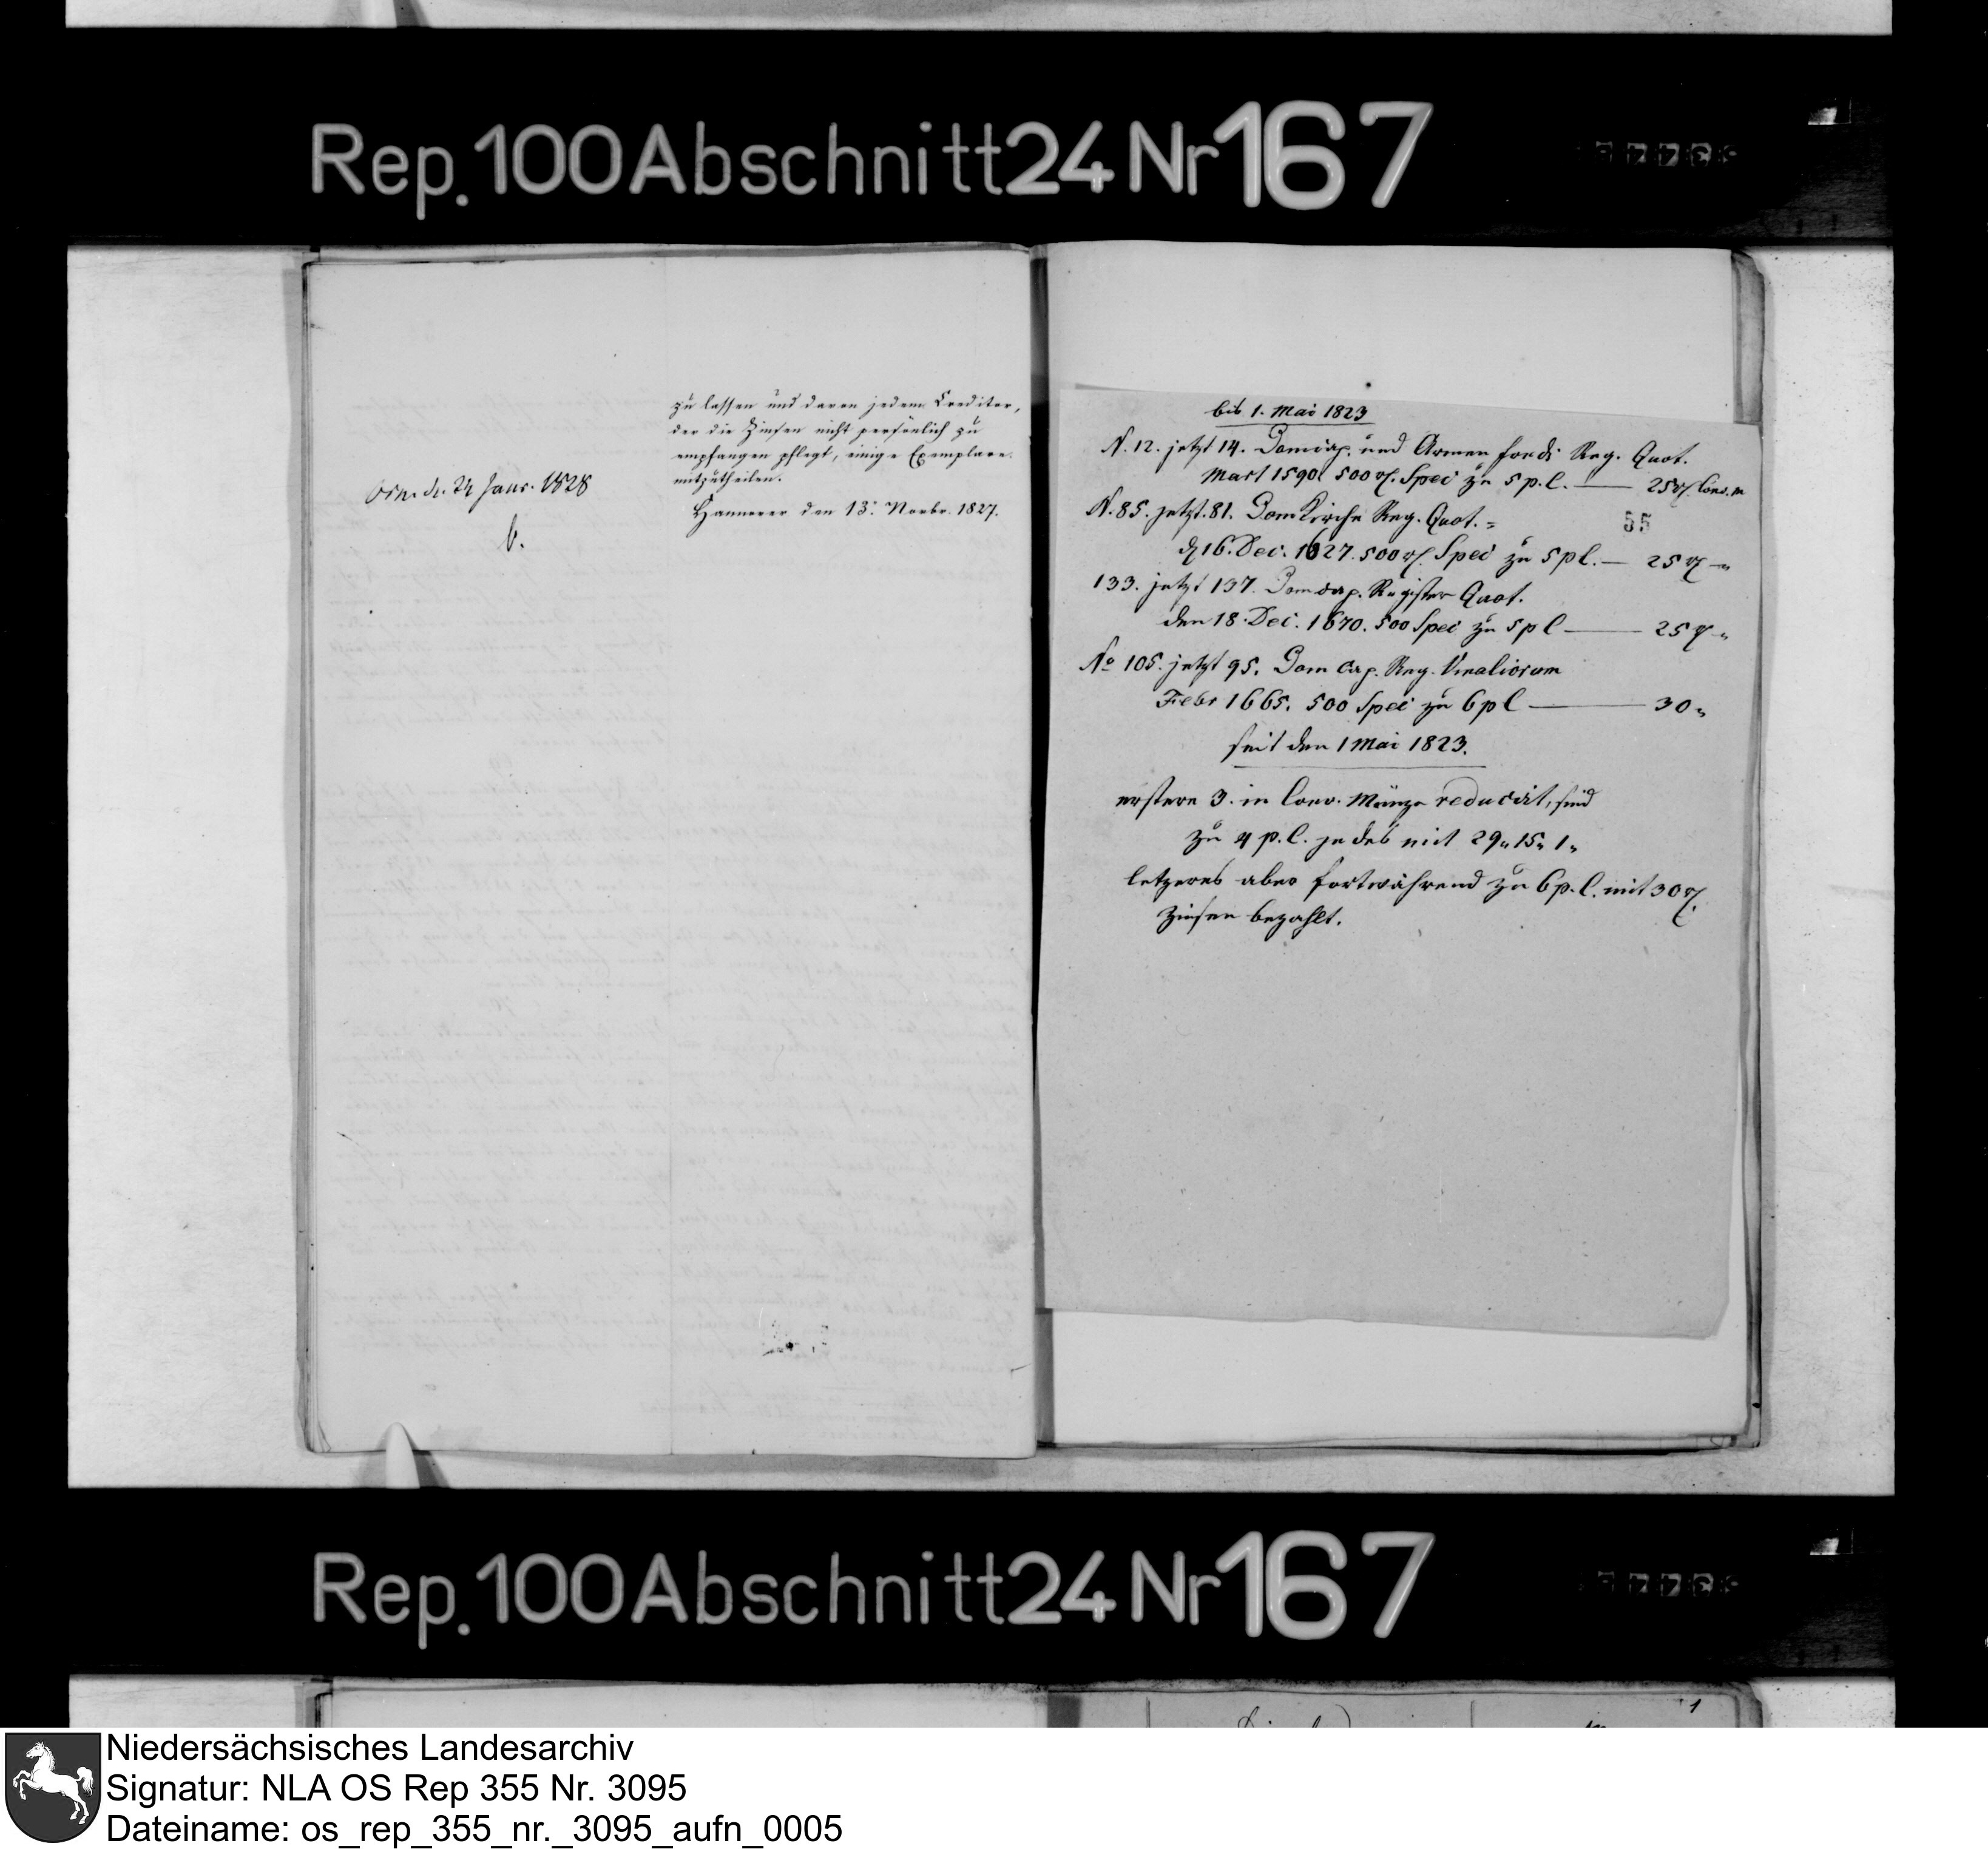 Rep. 100 Abschnitt 24 Nr 167
zu lassen und davon jedem Creditor,
der die Zinsen nicht persönlich zu
empfangen pflegt, einige Exemplare
mitzutheilen.
Hannover den 13: Novbr. 1827.
Osn. d. 24 Janr. 1828
b.
bis 1. Mai 1823
N. 12. jetzt 14. Domcap. und Armen fondi Reg. Quot.
Mart 1590 500 rℓ. Spec zu 5 p.C. — 25 rℓ Conv. M
N. 85. jetzt. 81. Dom Kirche Reg. Quot.
55
d 16. Dec. 1627. 500 rℓ. Spec zu 5 pC. — 25 rℓ „
133. jetzt 137. Domcap. Register Quot.
den 18. Dec. 1670. 500 Spec zu 5 pC — 25 rℓ „
No 105. jetzt 95. Dom Cap. Reg. Vinaliorum
Febr 1665. 500 Spec zu 6 pC — 30 „
seit den 1 Mai 1823.
erstere 3. in Conv. Münze reducirt, sind
zu 4 p.C. jedes mit 29„ 15„ 1„
letzeres aber fortwährend zu 6 p.C. mit 30 rℓ.
Zinsen bezahlt.
Rep. 100 Abschnitt 24 Nr 167
1
Niedersächsisches Landesarchiv
Signatur: NLA OS Rep 355 Nr. 3095
Dateiname: os_rep_355_nr._3095_aufn_0005